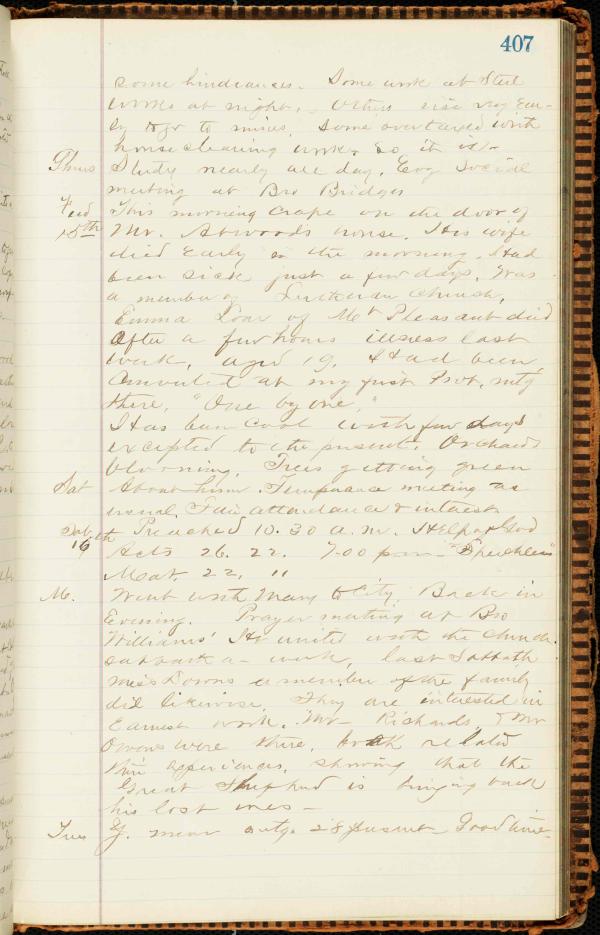 407
some hindrances. Some work at Steel
works at night. Others rise very Ear-
ly to go to mines. Some overtaxed with
house cleaning work. So it is.
Thurs Study nearly all day. Evg Social
meeting at Bro Bridges
Frid 15th This morning Crape on the door of
Mr. Atwoods house. His wife
died Early in the morning. Had
been sick just a few days. Was
a member of Lutheran Church.
Emma Loar of Mt Pleasant died
after a few hours illness last
week, aged 19. Had been
Converted at my first Prot. mtg
there. "One by one."
Has been Cool with few days
excepted to the present. Orchards
blooming. Trees getting green
Sat About home. Temperance meeting as
usual. Fair attendance & interest
Sab. 16th Preached 10.30 a.m. Help of God
Acts 26. 22. 7.00 p.m. "Speechless"
Mat. 22, 11
M. Went with Mary to City. Back in
Evening. Prayer meeting at Bro
Williams' He united with the Church
sabbath a week, last Sabbath
Miss Downs a member of the family
did likewise. They are interested in
Earnest work. Mr Richards & Mr
Owens were there, both related
their experiences, showing that the
Great Shepherd is bringing back
his lost ones -
Tues Y. mens mtg. 28 present Good time